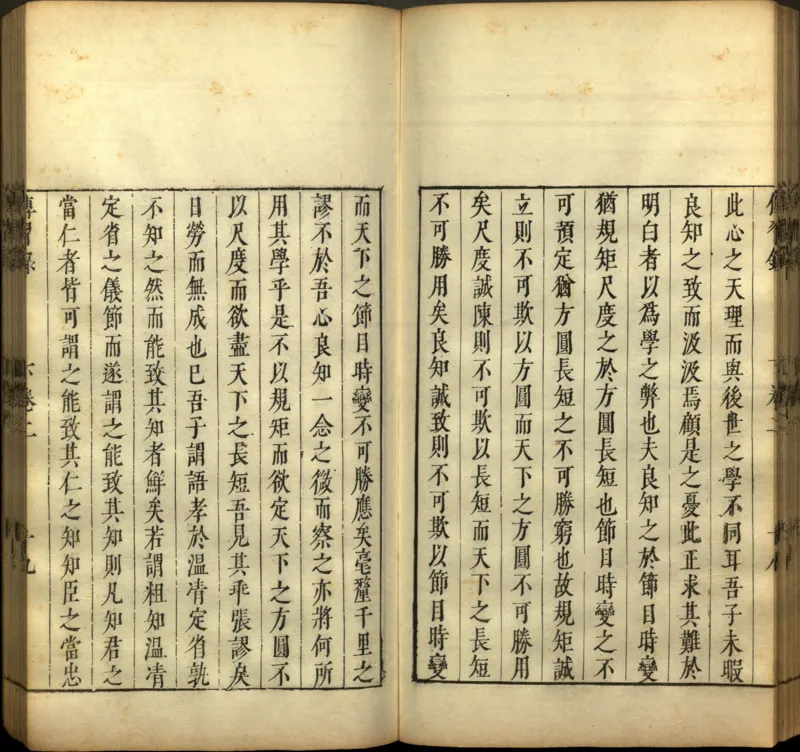 此心之天理而與後世之學不同耳吾子未暇
良知之致而汲汲焉顧是之憂此正求其難於
明白者以為學之弊也夫良知之於節目時變
猶規矩尺度之於方圓長短也節目時變之不
可預定猶方圓長短之不可勝窮也故規矩誠
立則不可欺以方圓而天下之方圓不可勝用
矣尺度誠陳則不可欺以長短而天下之長短
不可勝用矣良知誠致則不可欺以節目時變
而天下之節目時變不可勝應矣毫釐千里之
謬不於吾心良知一念之微而察之亦將何所
用其學乎是不以規矩而欲定天下之方圓不
以尺度而欲盡天下之長短吾見其乖張謬矣
日勞而無成也已吾子謂語孝於溫凊定省孰
不知之然而能致其知者鮮矣若謂粗知溫凊
定省之儀節而遂謂之能致其知則凡知君之
當仁者皆可謂之能致其仁之知知臣之當忠
卷二